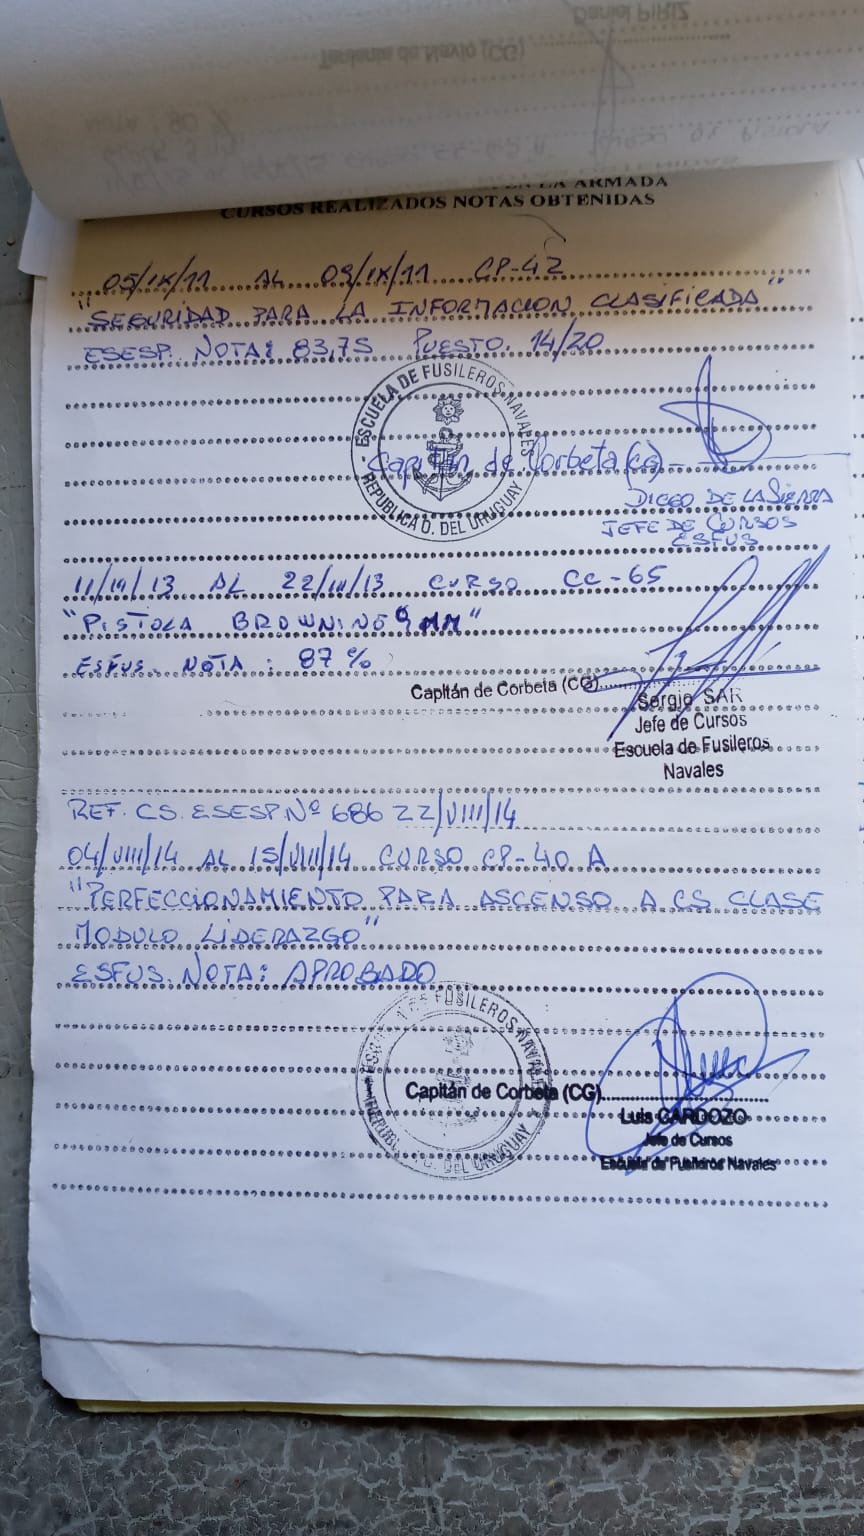 Daniel PIRIZ
Teniente de Navío (CG)
EN LA ARMADA
CURSOS REALIZADOS NOTAS OBTENIDAS
05/IX/11 AL 09/IX/11 CP-42
"SEGURIDAD PARA LA INFORMACION CLASIFICADA"
ESESP. NOTA: 83,75 PUESTO. 14/20
ESCUELA DE FUSILEROS NAVALES
REPUBLICA O. DEL URUGUAY
Capitán de Corbeta (CG)
DIEGO DE LA SIERRA
JEFE DE CURSOS
ESFUS
11/III/13 AL 22/III/13 CURSO CC-65
"PISTOLA BROWNING 9 MM"
ESFUS. NOTA: 87%
Capitán de Corbeta (CG)
Sergio SAR
Jefe de Cursos
Escuela de Fusileros
Navales
REF. CS. ESESP. Nº 686 22/VIII/14
04/VIII/14 AL 15/VIII/14 CURSO CP-40 A
"PERFECCIONAMIENTO PARA ASCENSO A CS CLASE
MODULO LIDERAZGO"
ESFUS. NOTA: APROBADO
FUSILEROS NAVALES
O. DEL URUGUAY
Capitán de Corbeta (CG)
Luis CARDOZO
Jefe de Cursos
Escuela de Fusileros Navales